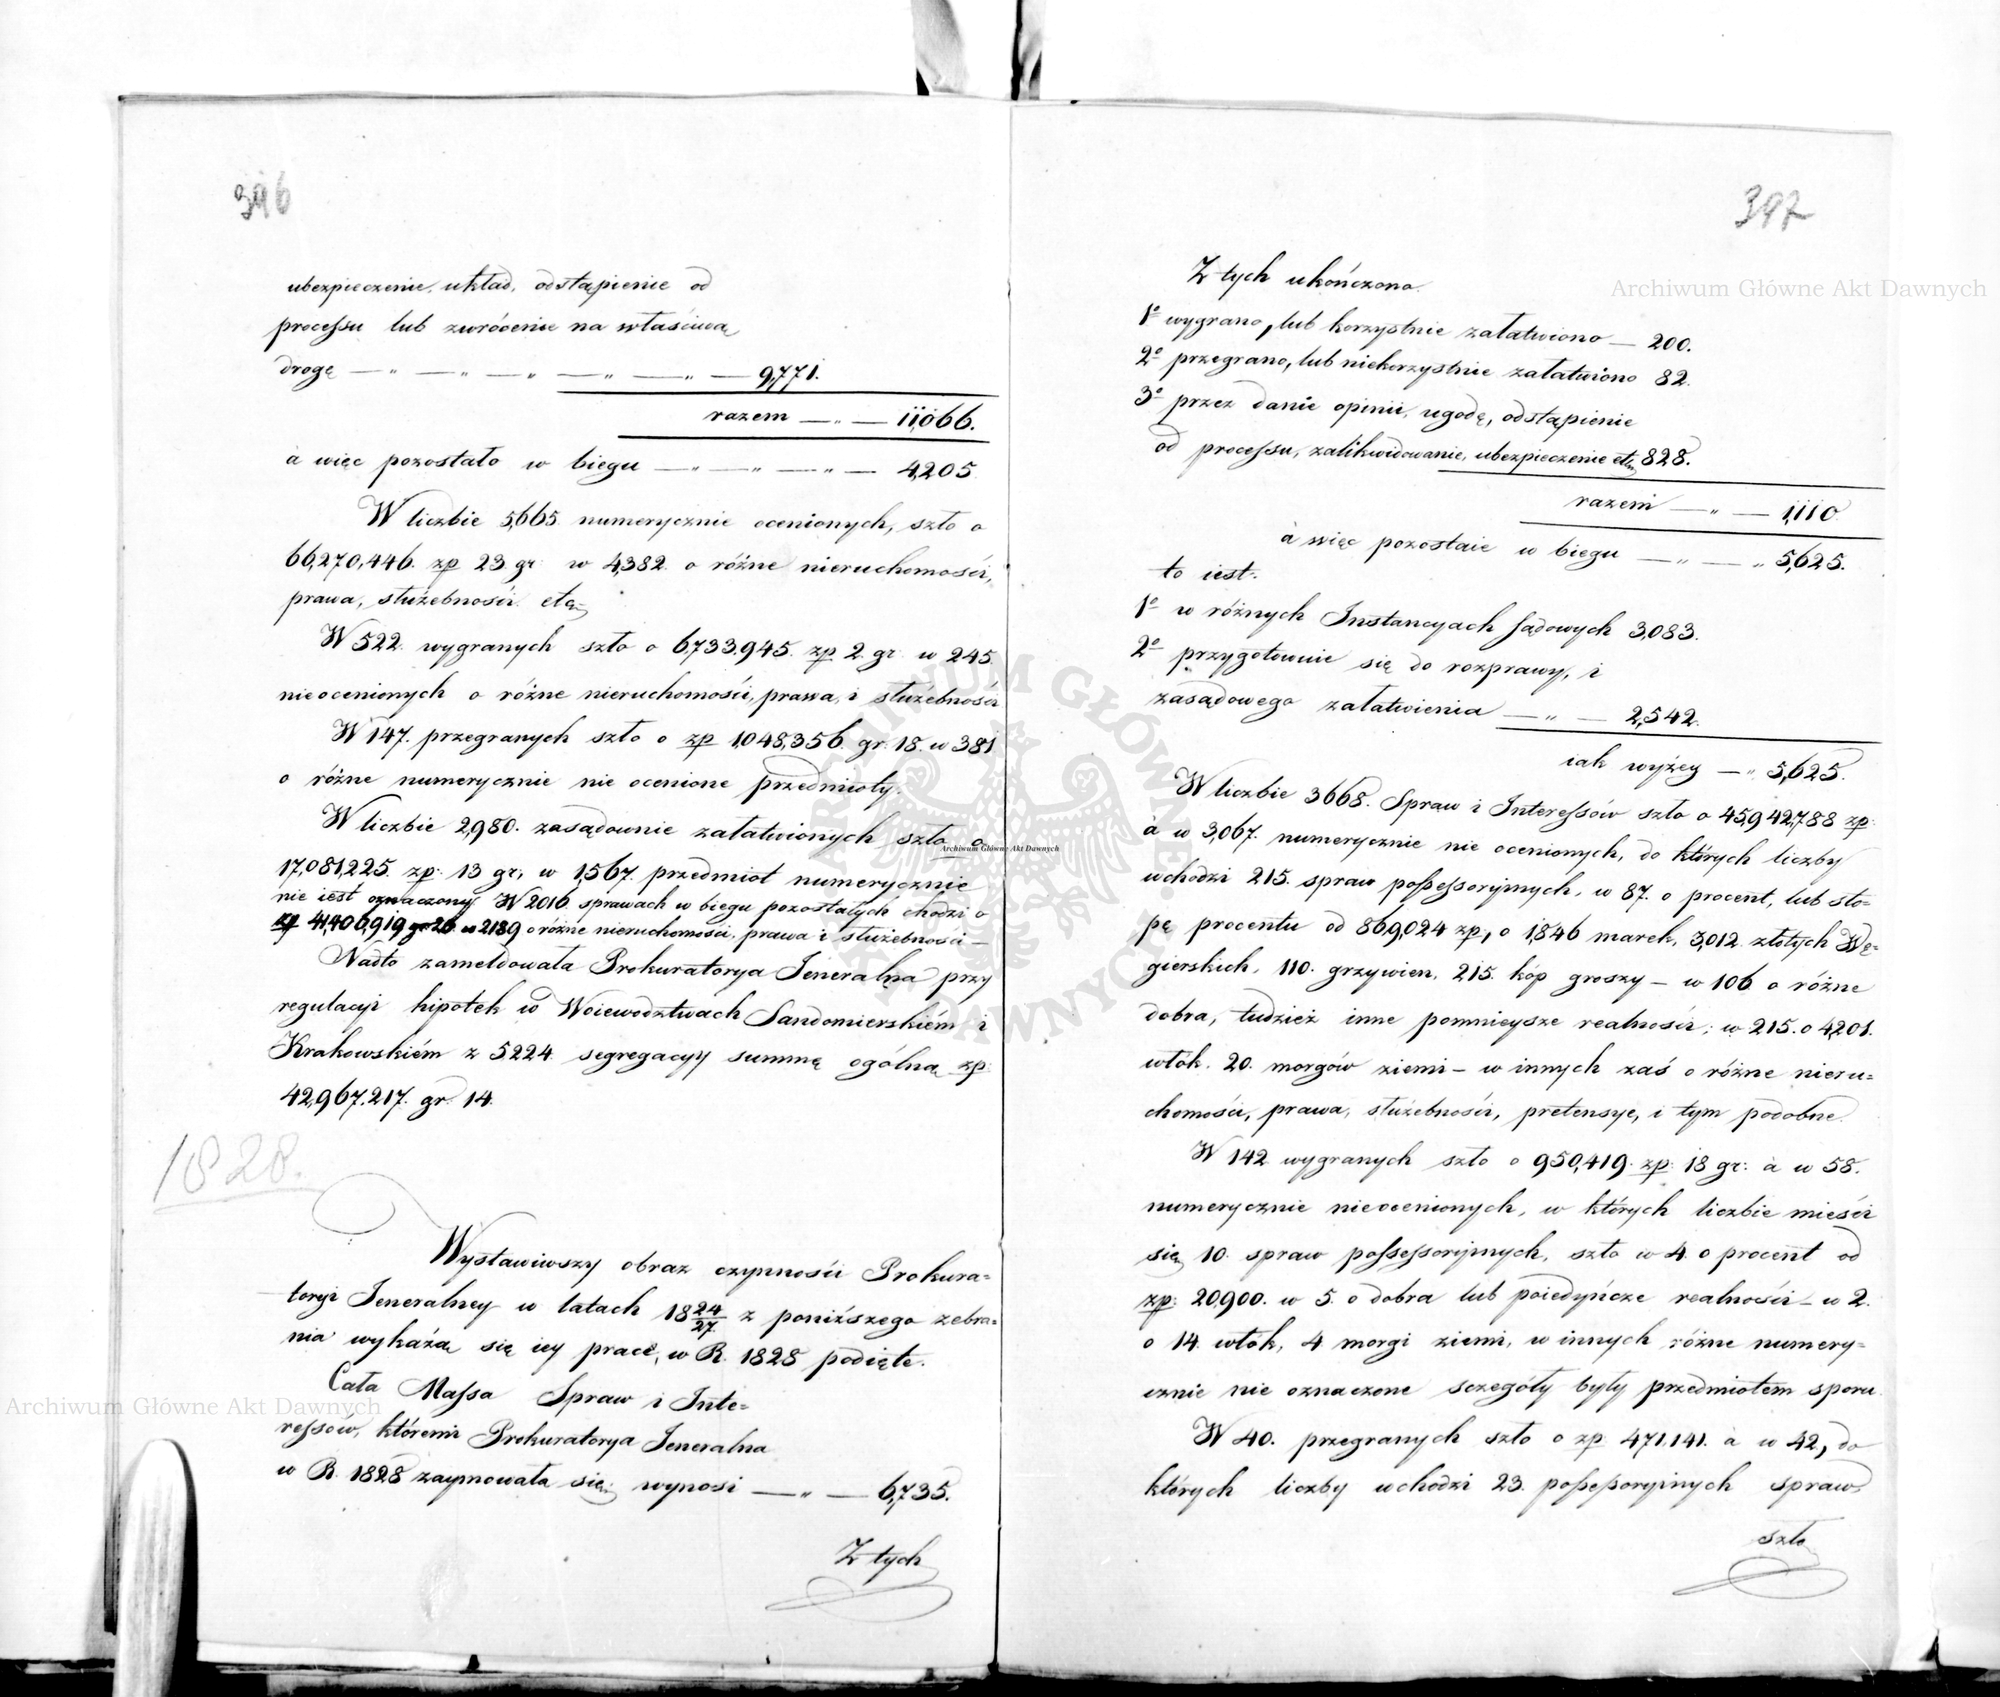 396
ubezpieczenie, układ, odstąpienie od
processu lub zwrócenie na właściwą
drogę — „ — „ — „ — „ — „ — 9,771.
razem — „ — 11,066.
a więc pozostało w biegu — „ — „ — „ — 4,205
W liczbie 5,665. numerycznie ocenionych, szło o
66,270,446. zp 23 gr: w 4,382 o różne nieruchomości,
prawa, służebności etc.
W 522. wygranych szło o 6,733,945. zp 2. gr. w 245.
nieocenionych o różne nieruchomości, prawa, i służebności
W 147. przegranych szło o zp 1,048,356. gr: 18. w 381
o różne numerycznie nie ocenione przedmioty.
W liczbie 2,980. zasądownie załatwionych szło o
17,081,225. zp. 13 gr, w 1,567. przedmiot numerycznie
nie iest oznaczony. W 2016. sprawach w biegu pozostałych chodzi o
zp 41,406,919 gr 26 w 2189 o różne nieruchomości, prawa i służebności —
Nadto zameldowała Prokuratorya Jeneralna przy
regulacyi hipotek w Woiewodztwach Sandomierskiém i
Krakowskiém z 5224. segregacyy summę ogólną zp:
42,967,217. gr. 14.
1828.
Wystawiwszy obraz czynności Prokura=
toryi Jeneralney w latach 18 24/27 z poniższego zebra=
nia wykażą się iey prace, w R. 1828 podięte.
Cała Massa Spraw i Inte=
ressów, któremi Prokuratorya Jeneralna
w R. 1828 zaymowała się, wynosi — „ — 6,735.
Z tych
397
Z tych ukończono.
1o wygrano, lub korzystnie załatwiono — 200.
2o przegrano, lub niekorzystnie załatwiono 82.
3o przez danie opinii, ugodę, odstąpienie
od processu, zalikwidowanie, ubezpieczenie etc. 828.
razem — „ — 1,110
a więc pozostaie w biegu — „ — „ 5,625.
to iest.
1o w różnych Instancyach sądowych 3,083.
2o przygotownie się do rozprawy, i
zasądowego załatwienia — „ — 2,542.
iak wyżey — „ 5,625.
W liczbie 3668. Spraw i Interessów szło o 45,942,788 zp:
a w 3,067. numerycznie nie ocenionych, do których liczby
wchodzi 215. spraw possessoryjnych, w 87. o procent, lub sto=
pę procentu od 869,024 zp, o 1,846 marek, 3,012 złotych Wę=
gierskich, 110. grzywien, 215. kóp groszy — w 106 o różne
dobra, tudzież inne pomnieysze realności; w 215. o 4,201.
włók. 20. morgów ziemi — w innych zaś o różne nieru=
chomości, prawa, służebności, pretensye, i tym podobne.
W 142 wygranych szło o 950,419. zp: 18 gr: a w 58.
numerycznie nieocenionych, w których liczbie mieści
się 10. spraw possessoryjnych, szło w 4. o procent od
zp: 20,900. w 5. o dobra lub poiedyńcze realności — w 2.
o 14. włók, 4 morgi ziemi, w innych różne numery=
cznie nie oznaczone sczegóły były przedmiotem sporu.
W 40. przegranych szło o zp: 471,141. a w 42, do
których liczby wchodzi 23. possessoryinych spraw,
szło
Archiwum Główne Akt Dawnych
Archiwum Główne Akt Dawnych
Archiwum Główne Akt Dawnych
ARCHIWUM GŁÓWNE AKT DAWNYCH